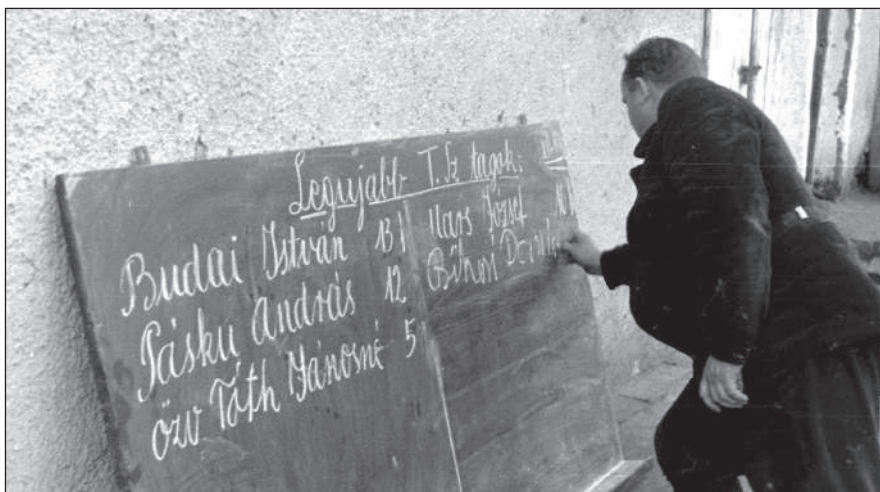 Legujabb T. Sz tagok:
Budai István 13
Pásku András 12
özv Tóth Jánosné 5
Mars József
Bihari